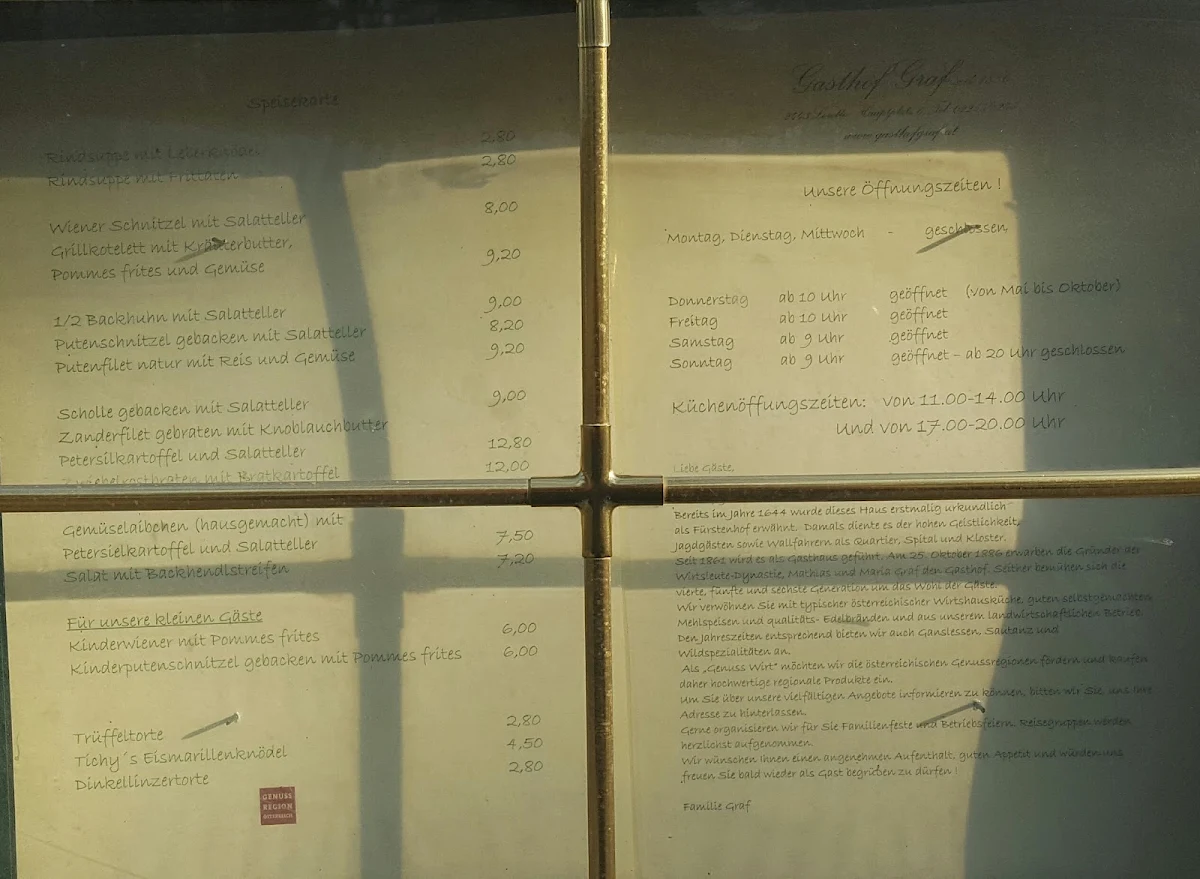 Speisekarte
Rindsuppe mit Leberknödel 2,80
Rindsuppe mit Frittaten 2,80
Wiener Schnitzel mit Salatteller 8,00
Grillkotelett mit Kräuterbutter,
Pommes frites und Gemüse 9,20
1/2 Backhuhn mit Salatteller 9,00
Putenschnitzel gebacken mit Salatteller 8,20
Putenfilet natur mit Reis und Gemüse 9,20
Scholle gebacken mit Salatteller 9,00
Zanderfilet gebraten mit Knoblauchbutter
Petersilkartoffel und Salatteller 12,80
Zwiebelrostbraten mit Bratkartoffel 12,00
Gemüselaibchen (hausgemacht) mit
Petersielkartoffel und Salatteller 7,50
Salat mit Backhendlstreifen 7,20
Für unsere kleinen Gäste
Kinderwiener mit Pommes frites 6,00
Kinderputenschnitzel gebacken mit Pommes frites 6,00
Trüffeltorte 2,80
Tichy´s Eismarillenknödel 4,50
Dinkellinzertorte 2,80
GENUSS
REGION
ÖSTERREICH
Gasthof Graf
Hauptplatz Tel
www.gasthofgraf.at
Unsere Öffnungszeiten !
Montag, Dienstag, Mittwoch - geschlossen
Donnerstag ab 10 Uhr geöffnet (von Mai bis Oktober)
Freitag ab 10 Uhr geöffnet
Samstag ab 9 Uhr geöffnet
Sonntag ab 9 Uhr geöffnet - ab 20 Uhr geschlossen
Küchenöffungszeiten: von 11.00-14.00 Uhr
Und von 17.00-20.00 Uhr
Liebe Gäste,
Bereits im Jahre 1644 wurde dieses Haus erstmalig urkundlich
als Fürstenhof erwähnt. Damals diente es der hohen Geistlichkeit,
Jagdgästen sowie Wallfahrern als Quartier, Spital und Kloster.
Seit 1861 wird es als Gasthaus geführt. Am 25. Oktober 1886 erwarben die Gründer der
Wirtsleute-Dynastie, Mathias und Maria Graf den Gasthof. Seither bemühen sich die
vierte, fünfte und sechste Generation um das Wohl der Gäste.
Wir verwöhnen Sie mit typischer österreichischer Wirtshausküche, guten selbstgemachten
Mehlspeisen und qualitäts- Edelbränden und aus unserem landwirtschaftlichen Betrieb.
Den Jahreszeiten entsprechend bieten wir auch Ganslessen, Sautanz und
Wildspezialitäten an.
Als „Genuss Wirt" möchten wir die österreichischen Genussregionen fördern und kaufen
daher hochwertige regionale Produkte ein.
Um Sie über unsere vielfältigen Angebote informieren zu können, bitten wir Sie, uns Ihre
Adresse zu hinterlassen.
Gerne organisieren wir für Sie Familienfeste und Betriebsfeiern. Reisegruppen werden
herzlichst aufgenommen.
Wir wünschen Ihnen einen angenehmen Aufenthalt, guten Appetit und würden uns
freuen Sie bald wieder als Gast begrüßen zu dürfen !
Familie Graf